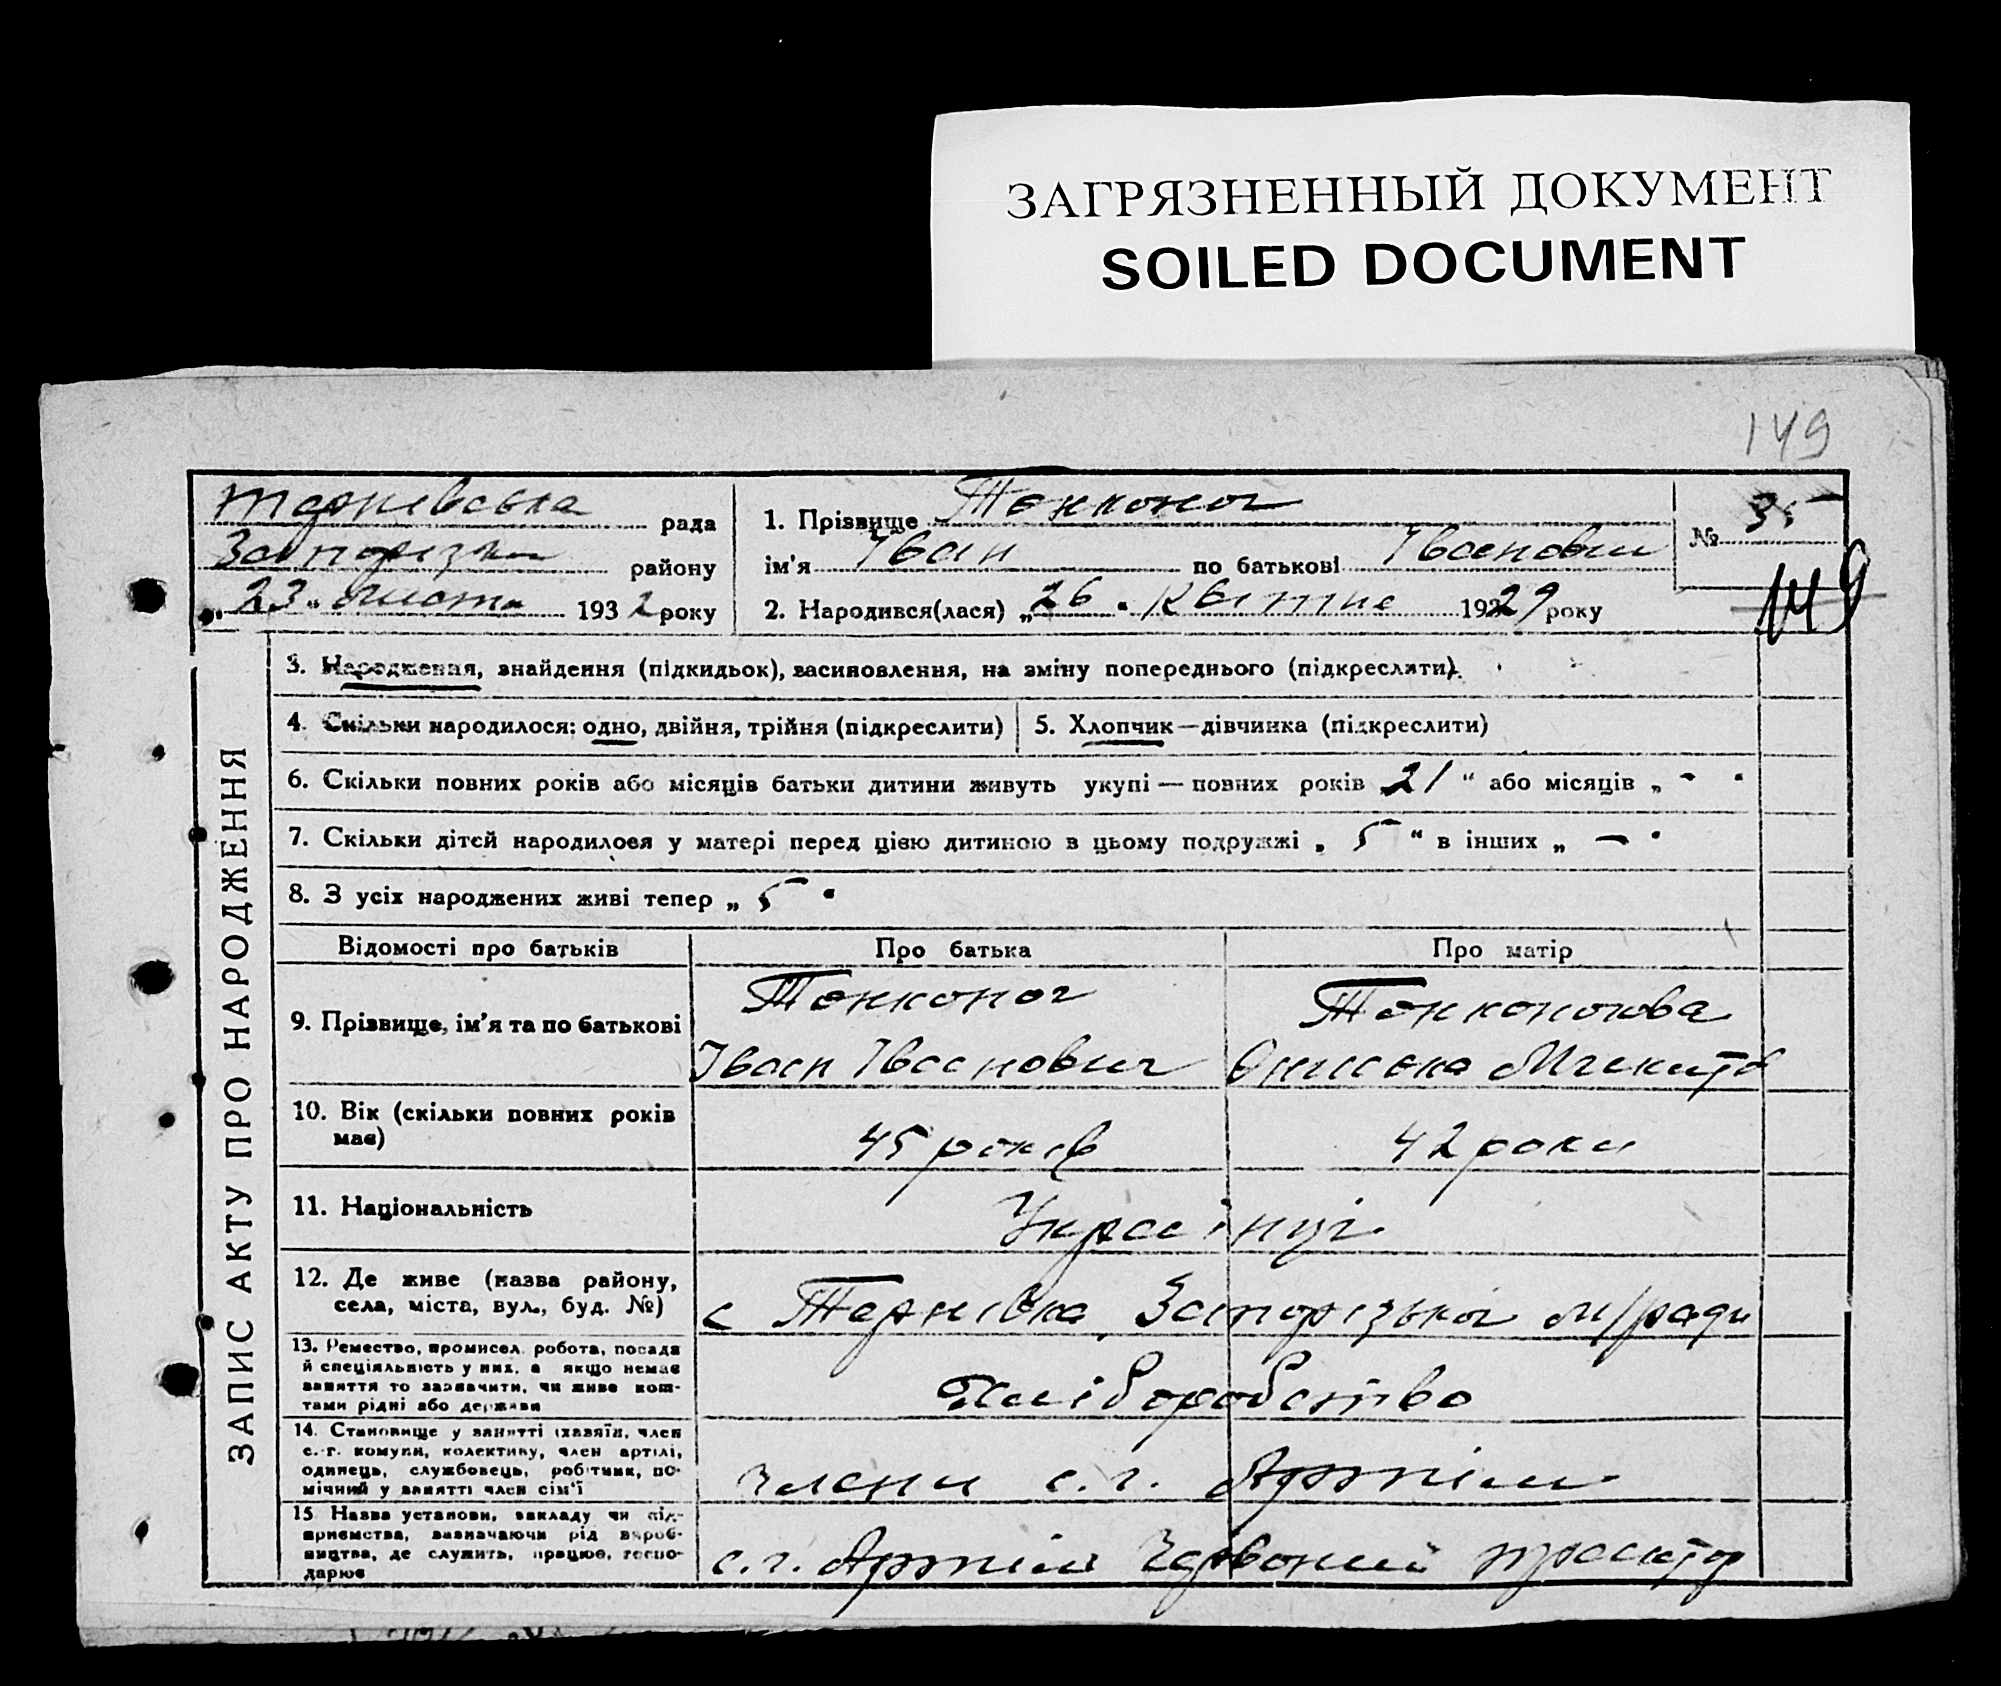 ЗАГРЯЗНЕННЫЙ ДОКУМЕНТ
SOILED DOCUMENT
149
Тернівська рада
Запорізьки району
„23“ листп 1932 року
1. Прізвище Тонконог
ім'я Іван по батькові Іванович
2. Народився(лася) „26“ Квітне 1929 року
№ 35
149
ЗАПИС АКТУ ПРО НАРОДЖЕННЯ
3. Народження, знайдення (підкидьок), засиновлення, на зміну попереднього (підкреслити).
4. Скільки народилося: одно, двійня, трійня (підкреслити)
5. Хлопчик—дівчинка (підкреслити)
6. Скільки повних років або місяців батьки дитини живуть укупі — повних років 21 “ або місяців „ - "
7. Скільки дітей народилося у матері перед цією дитиною в цьому подружжі „ 5 “ в інших „ — "
8. З усіх народжених живі тепер „ 5 "
Відомості про батьків
Про батька
Про матір
9. Прізвище, ім'я та по батькові
Тонконог
Іван Іванович
Тонконогова
Ониська Микит
10. Вік (скільки повних років
має)
45 років
42 роки
11. Національність
Українці
12. Де живе (назва району,
села, міста, вул., буд. №)
с Тернівка, Запорізької м/ради
13. Ремество, промисел, робота, посада
й спеціяльність у них, а якщо немає
заняття то зазначити, чи живе кош-
тами рідні або держави
Хліборобство
14. Становище у занятті (хазяїн, член
с.-г. комуни, колективу, член артілі,
одинець, службовець, робітник, по-
мічний у занятті член сім'ї
Члени с. г. Артіли
15 Назва установи, закладу чи під-
приємства, зазначаючи рід вироб-
ництва, де служить, працює, госпо-
дарює
с. г. Артіль Червоний трактор